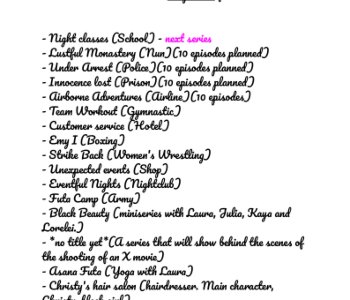 - Night classes (School) - next series
- Lustful Monastery (Nun)(10 episodes planned)
- Under Arrest (Police)(10 episodes planned)
- Innocence lost (Prison)(10 episodes planned)
- Airborne Adventures (Airline)(10 episodes)
- Team Workout (Gymnastic)
- Customer service (Hotel)
- Emy I (Boxing)
- Strike Back (Women's Wrestling)
- Unexpected events (Shop)
- Eventful Nights (Nightclub)
- Futa Camp (Army)
- Black Beauty (miniseries with Laura, Julia, Kaya and
Lorelei.)
- *no title yet*(A series that will show behind the scenes of
the shooting of an X movie)
- Asana Futa (Yoga with Laura)
- Christy's hair salon (Hairdresser. Main character,